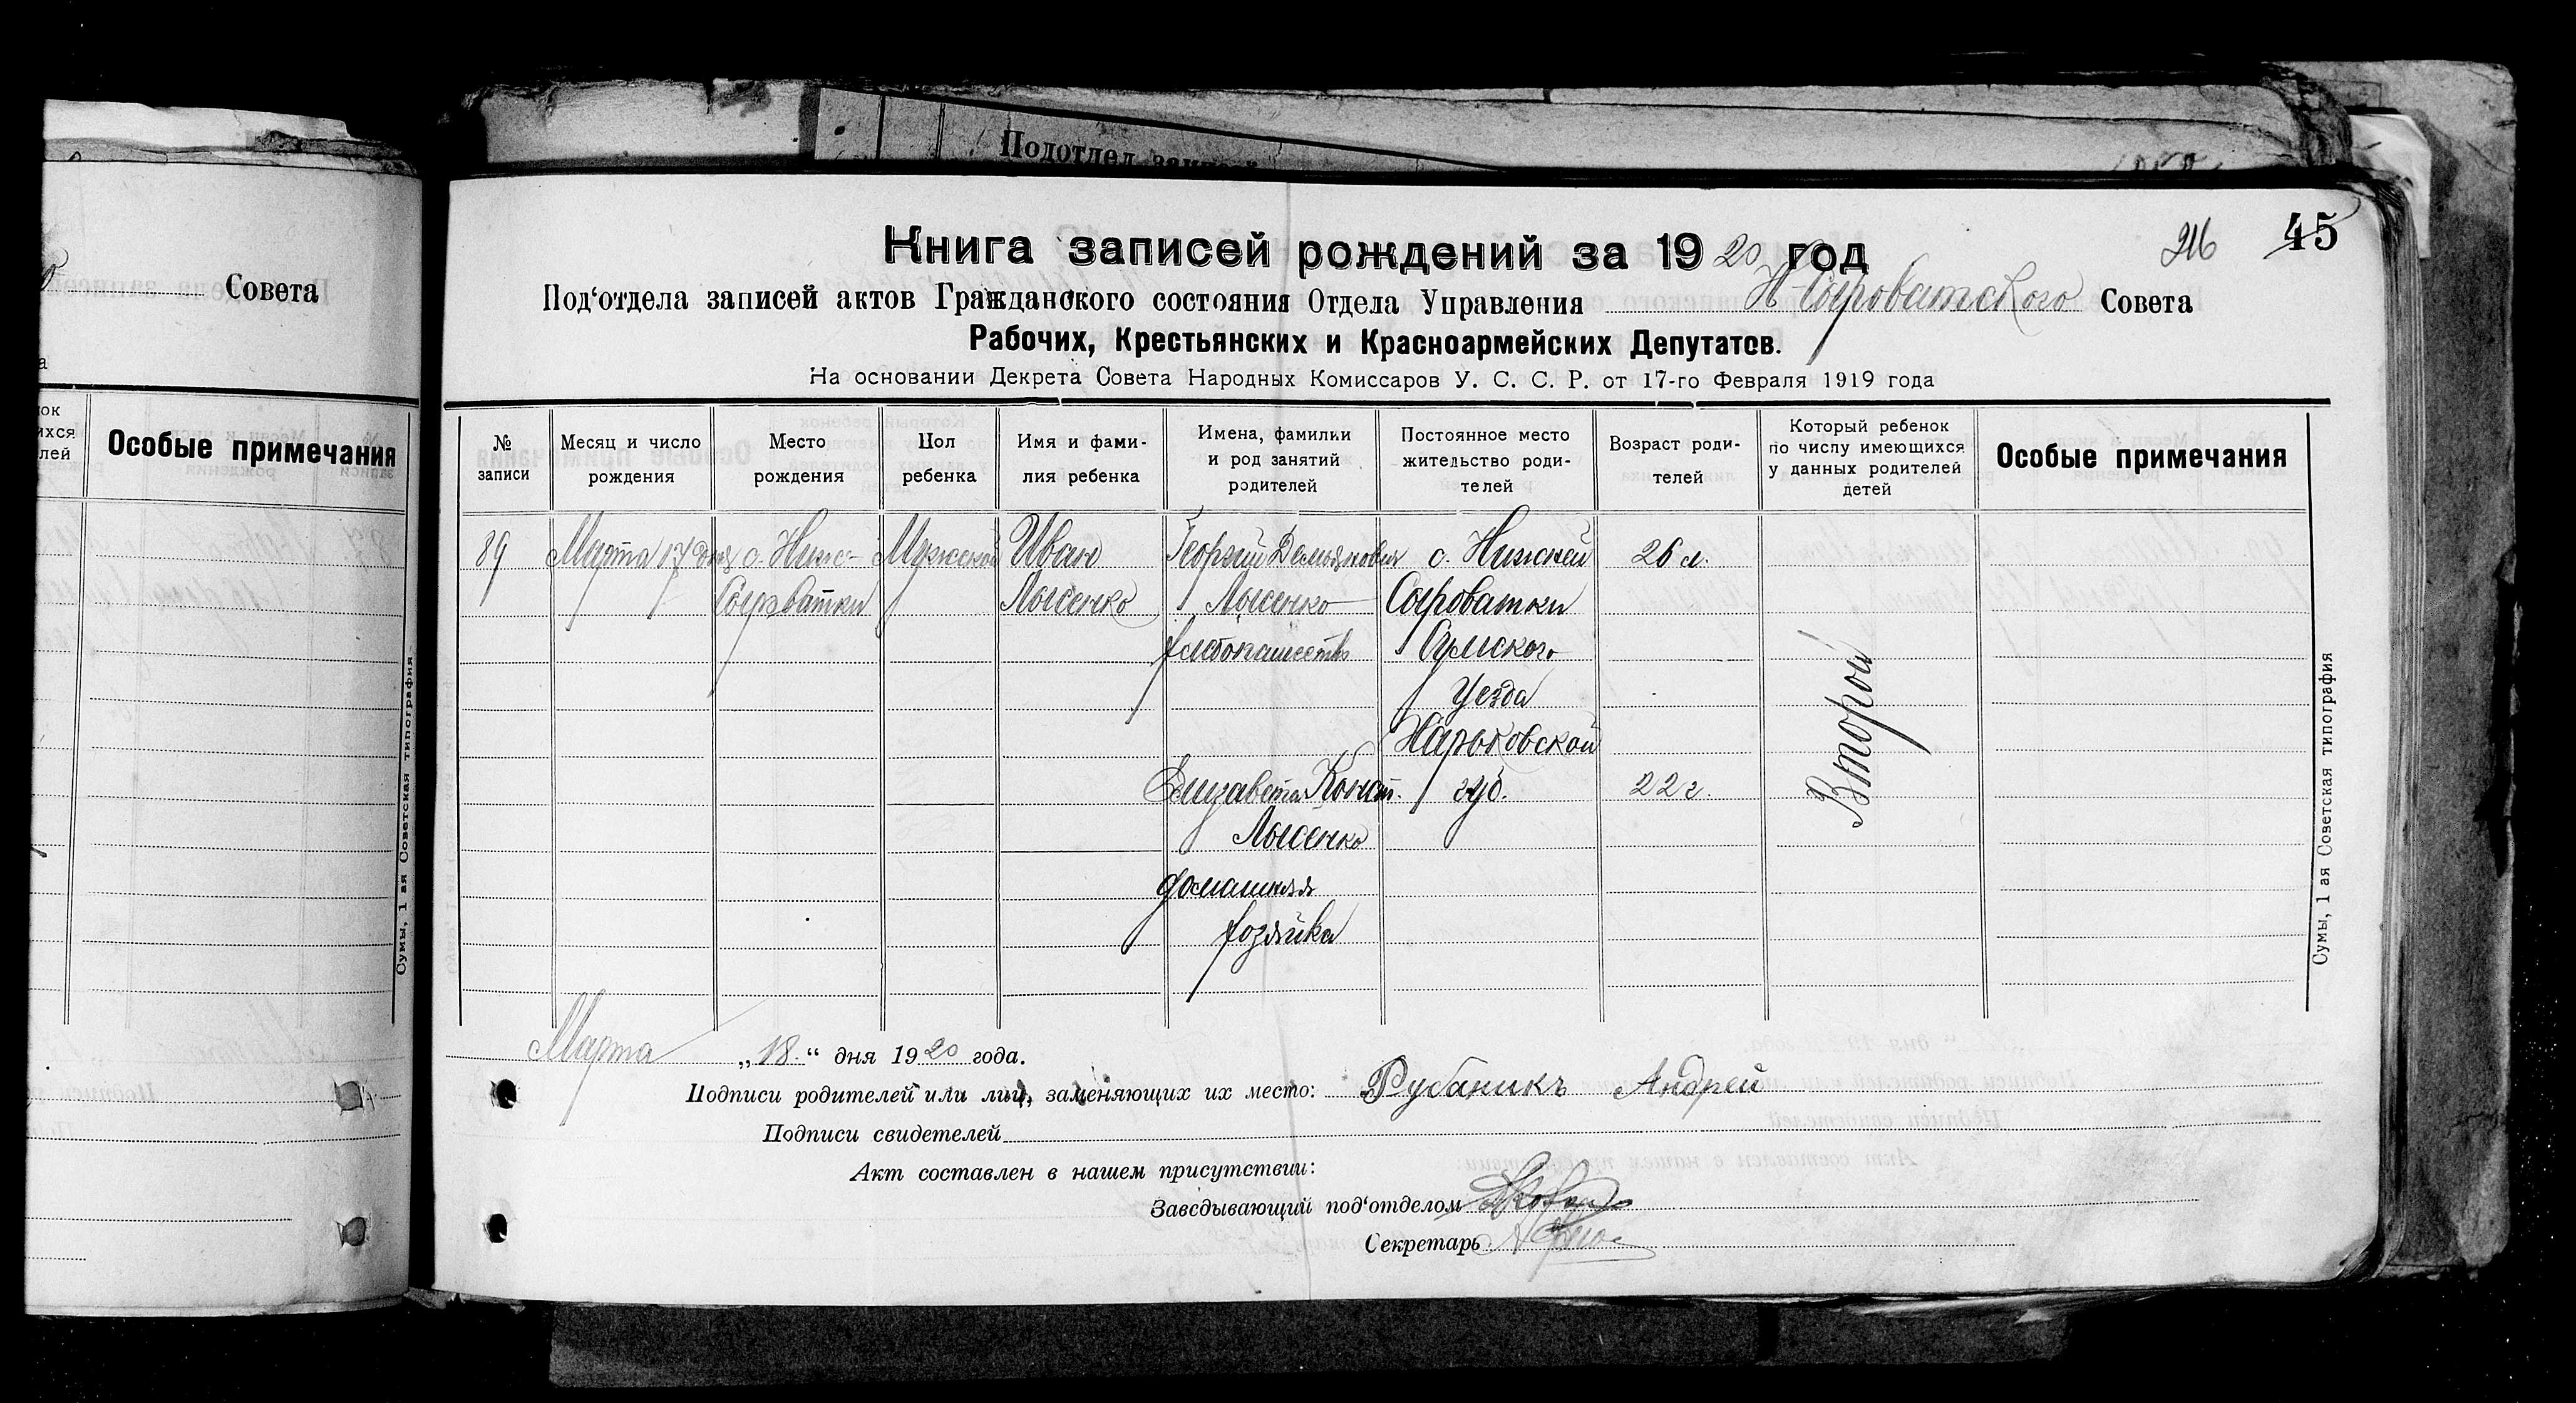 Подотдел
Совета
Особые примечания
Сумы, 1 ая Советская типография
216 45
Книга записей рождений за 1920 год
Под‘отдела записей актов Гражданского состояния Отдела Управления Н-Сыроватского Совета
Рабочих, Крестьянских и Красноармейских Депутатов.
На основании Декрета Совета Народных Комиссаров У. С. С. Р. от 17-го Февраля 1919 года
№ записи
Месяц и число рождения
Место рождения
Пол ребенка
Имя и фами-
лия ребенка
Имена, фамилии
и род занятий
родителей
Постоянное место
жительство роди-
телей
Возраст роди-
телей
Который ребенок
по числу имеющихся
у данных родителей
детей
Особые примечания
89
Марта 17 дня
с. Ниж-
Сыроватки
Мужской
Иван
Лысенко
Георгий Демьянович
Лысенко
хлебопашество
Елизавета Конст.
Лысенко
домашняя
хозяйка
с. Нижней
Сыроватки
Сумского
Уезда
Харьковской
губ.
26 л.
22 г.
Второй
Марта „18“ дня 1920 года.
Подписи родителей или лиц, заменяющих их место: Рубаникъ Андрей
Подписи свидетелей
Акт составлен в нашем присутствии:
Заведывающий под‘отделом
Секретарь
Сумы, 1 ая Советская типография